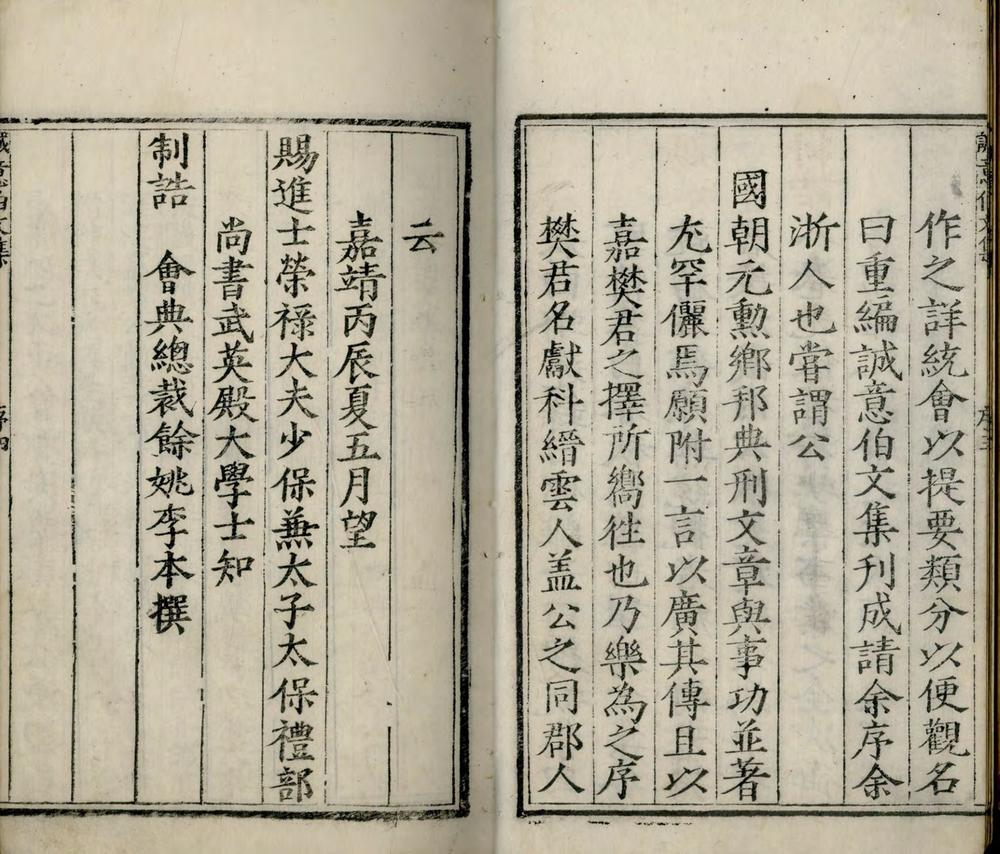 作之詳統會以提要類分以便觀名
曰重編誠意伯文集刋成請余序余
浙人也嘗謂公
國朝元勳鄉邦典刑文章與事功並著
尤罕儷焉願附一言以廣其傳且以
嘉樊君之擇所嚮徃也乃樂為之序
樊君名獻科縉雲人盖公之同郡人
云
嘉靖丙辰夏五月望
賜進士榮祿大夫少保兼太子太保禮部
尚書武英殿大學士知
制誥　會典總裁餘姚李本撰
序四